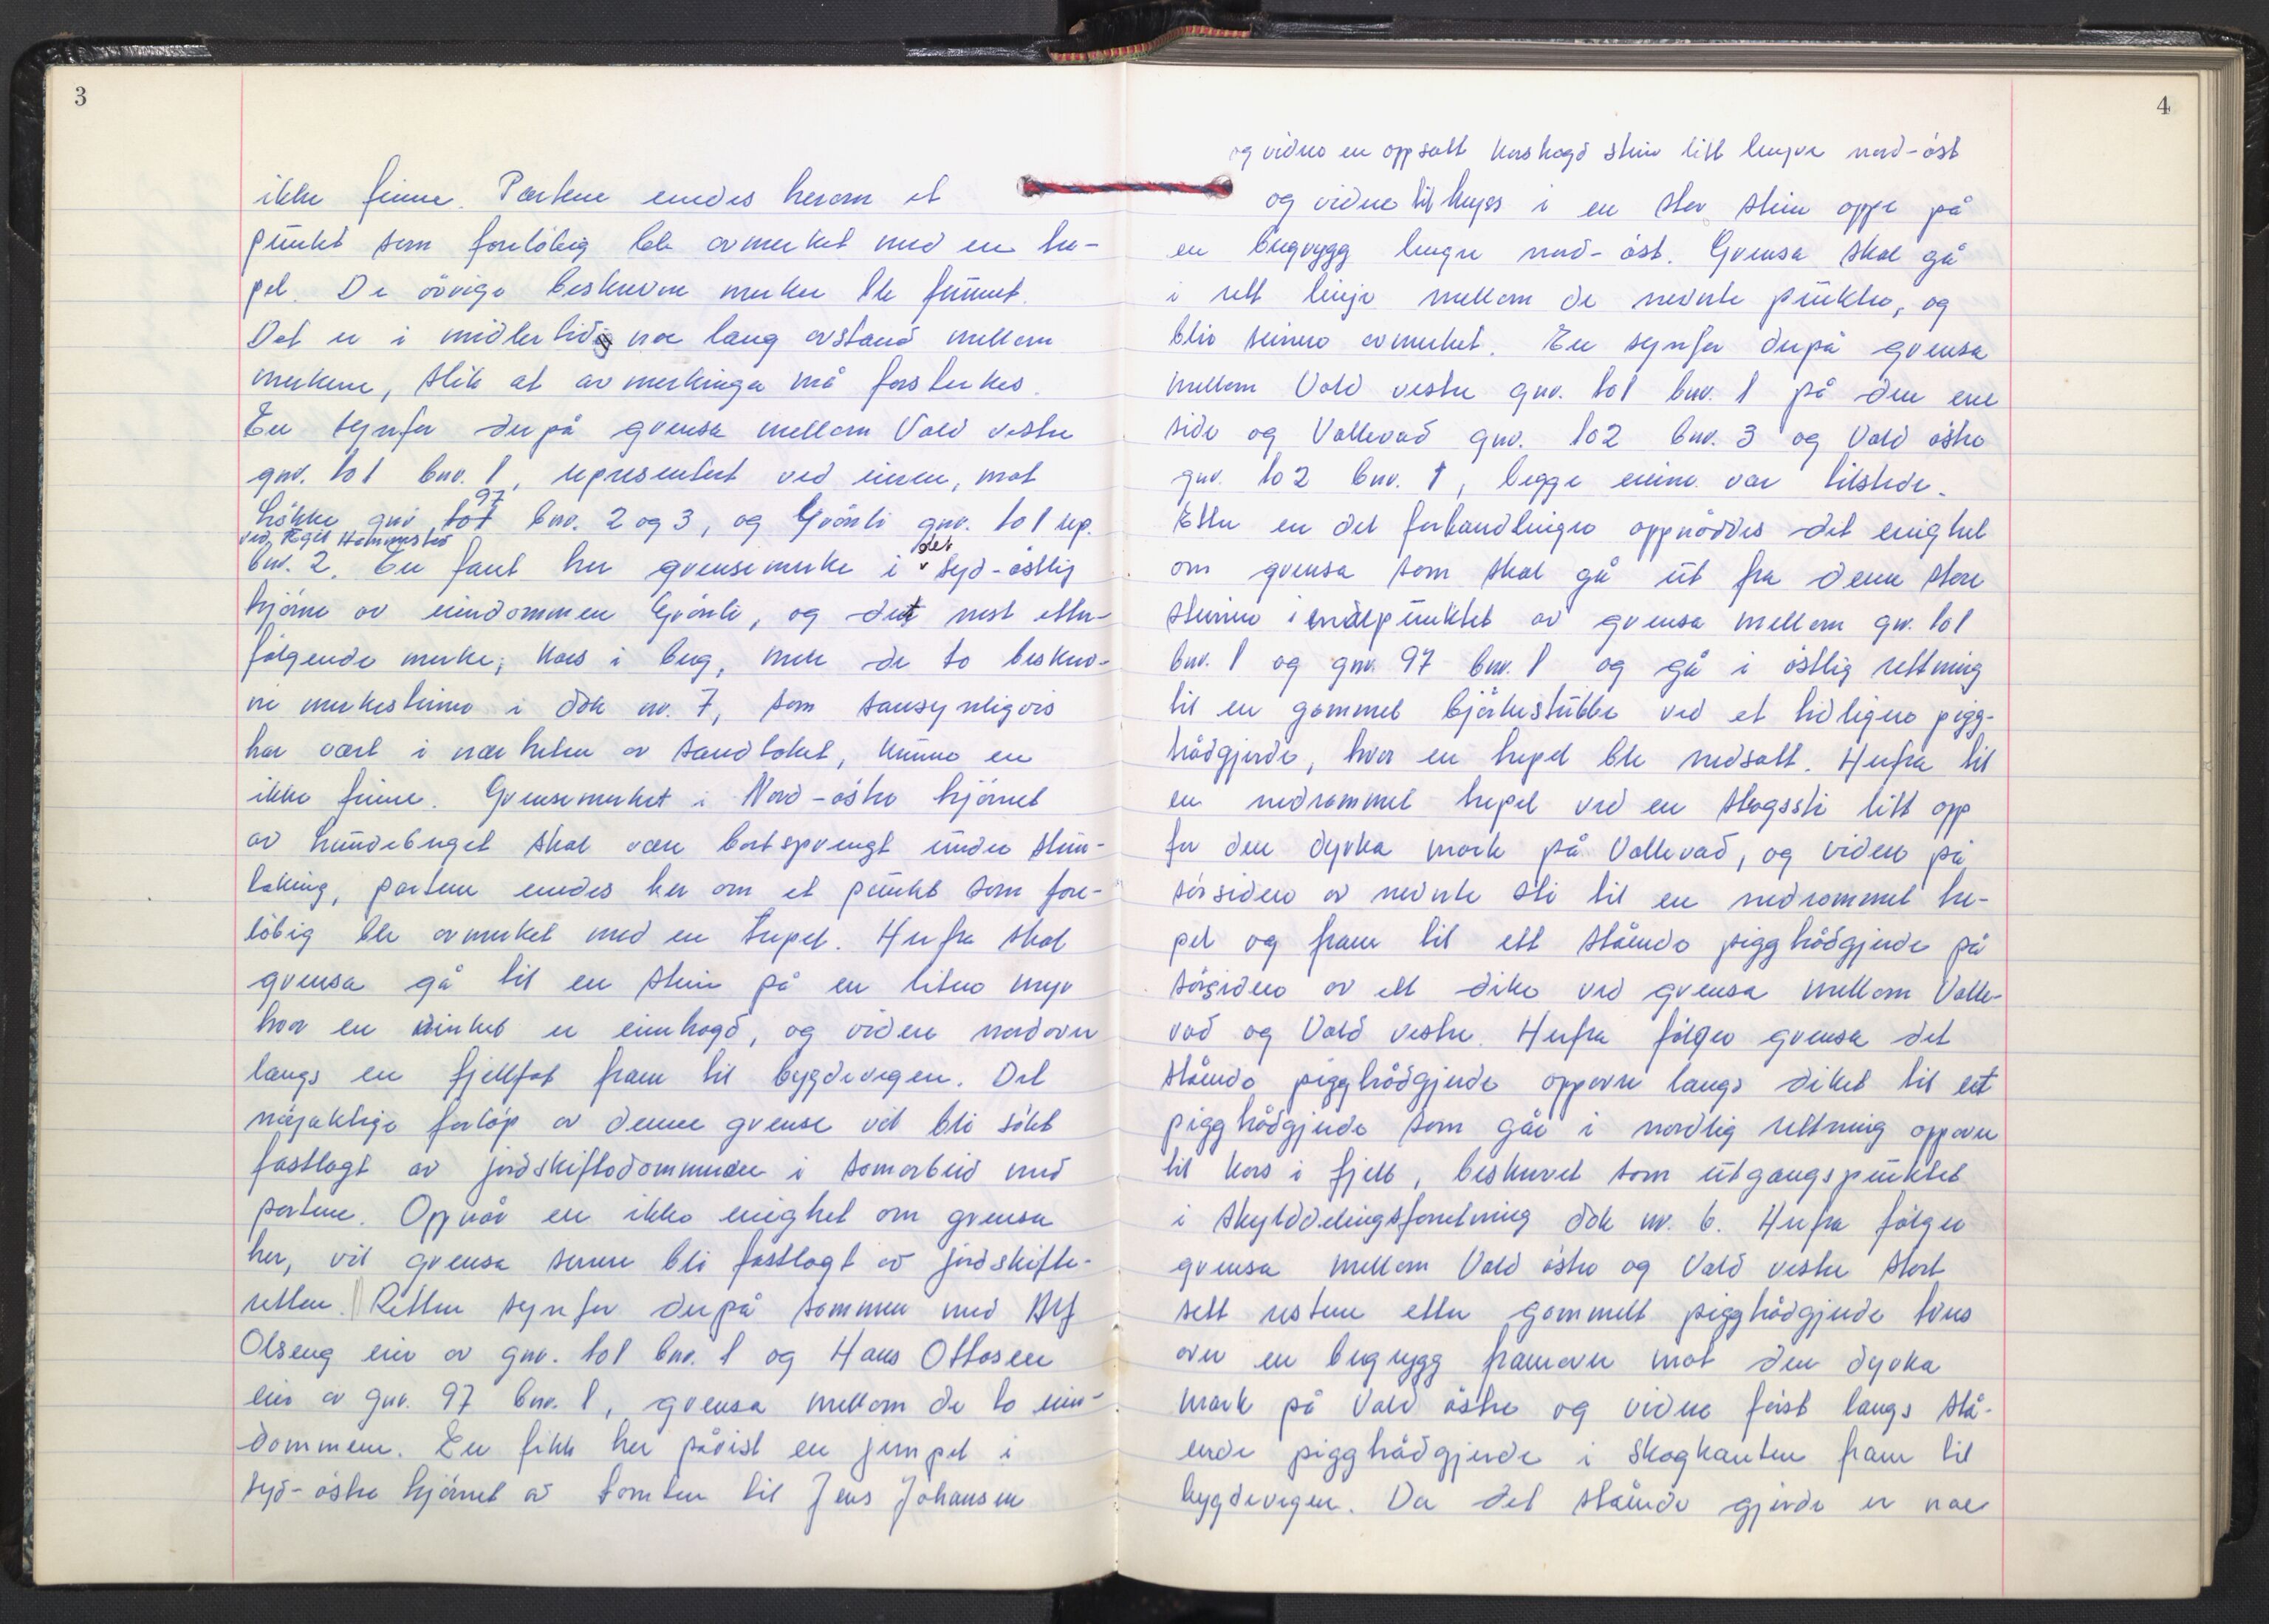 3
ikke finne. Partene enedes herom et
punkt som foreløbig ble avmerket med en tre-
pel. De øvrige beskrevne merker ble funnet.
Det er i midlertid noe lang avstand mellom
merkene, slik at avmerkinga må forsterkes.
En synfor derpå grensa mellom Vold vestre
gnr. 101 bnr. 1, representert ved eieren, mot
Løkke gnr. 97 bnr. 2 og 3, og Grønli gnr. 101 rep.
ved Egil Hammestad
bnr. 2. En fant her grensemerke i det syd-østlig
hjørne av eiendommen Grønli, og det nest etter-
følgende merke; kors i berg, men de to beskrev-
ne merkesteiner i dok nr. 7, som sansynligvis
har vært i nærheten av sandtaket, kunne en
ikke finne. Grensemerket i Nord-østre hjørnet
av hundeberget skal være bortsprengt under stein-
taking, partene enedes her om et punkt som fore-
løbig ble avmerket med en trepel. Herfra skal
grensa gå til en stein på en liten myr
hvor en vinkel er einhogd, og videre nordover
langs en fjellfot fram til bygdevegen. Det
nøyaktige forløp av denne grense vil bli søkt
fastlagt av jordskiftedommeren i samarbeid med
partene. Oppnår en ikke enighet om grensa
her, vil grensa senere bli fastlagt av jordskifte-
retten. Retten synfor derpå sammen med Alf
Olseng eier av gnr. 101 bnr. 1 og Hans Ottosen
eier av gnr. 97 bnr. 1, grensa mellom de to eien-
dommene. En fikk her påvist en jernpel i
syd-østre hjørnet av tomten til Jens Johansen
4
og videre en oppsatt korshogd stein litt lengre nord-øst
og videre til kryss i en stor stein oppe på
en bergrygg lengre nord-øst. Grensa skal gå
i rett linje mellom de nevnte punkter, og
blir seinere avmerket. En synfor derpå grensa
mellom Vold vestre gnr. 101 bnr. 1 på den ene
side og Vollevad gnr. 102 bnr. 3 og Vold østre
gnr. 102 bnr. 1, begge eiere var tilstede.
Etter en del forhandlinger oppnåddes det enighet
om grensa som skal gå ut fra denne store
steinen i endepunktet av grensa mellom gnr. 101
bnr. 1 og gnr. 97 bnr. 1 og gå i østlig rettning
til en gammel bjørkestubbe ved et tidligere pigg-
trådgjerde, hvor en trepel ble nedsatt. Herfra til
en nedrammet trepel ved en skogssti litt opp
for den dyrka mark på Vollevad, og videre på
sørsiden av nevnte sti til en nedrammet tre-
pel og fram til ett stående piggtrådgjerde på
sørsiden av ett dike ved grensa mellom Volle-
vad og Vold vestre. Herfra følger grensa det
stående piggtrådgjerde oppover langs diket til et
piggtrådgjerde som går i nordlig rettning oppover
til kors i fjell, beskrevet som utgangspunktet
i skylddelingsforretning dok nr. 6. Herfra følger
grensa mellom Vold østre og Vold vestre stort
sett restene etter gammelt piggtrådgjerde tvers
over en bergrygg framover mot den dyrka
mark på Vold østre og videre først langs stå-
ende piggtrådgjerde i skogkanten fram til
bygdevegen. Da det stående gjerde er noe